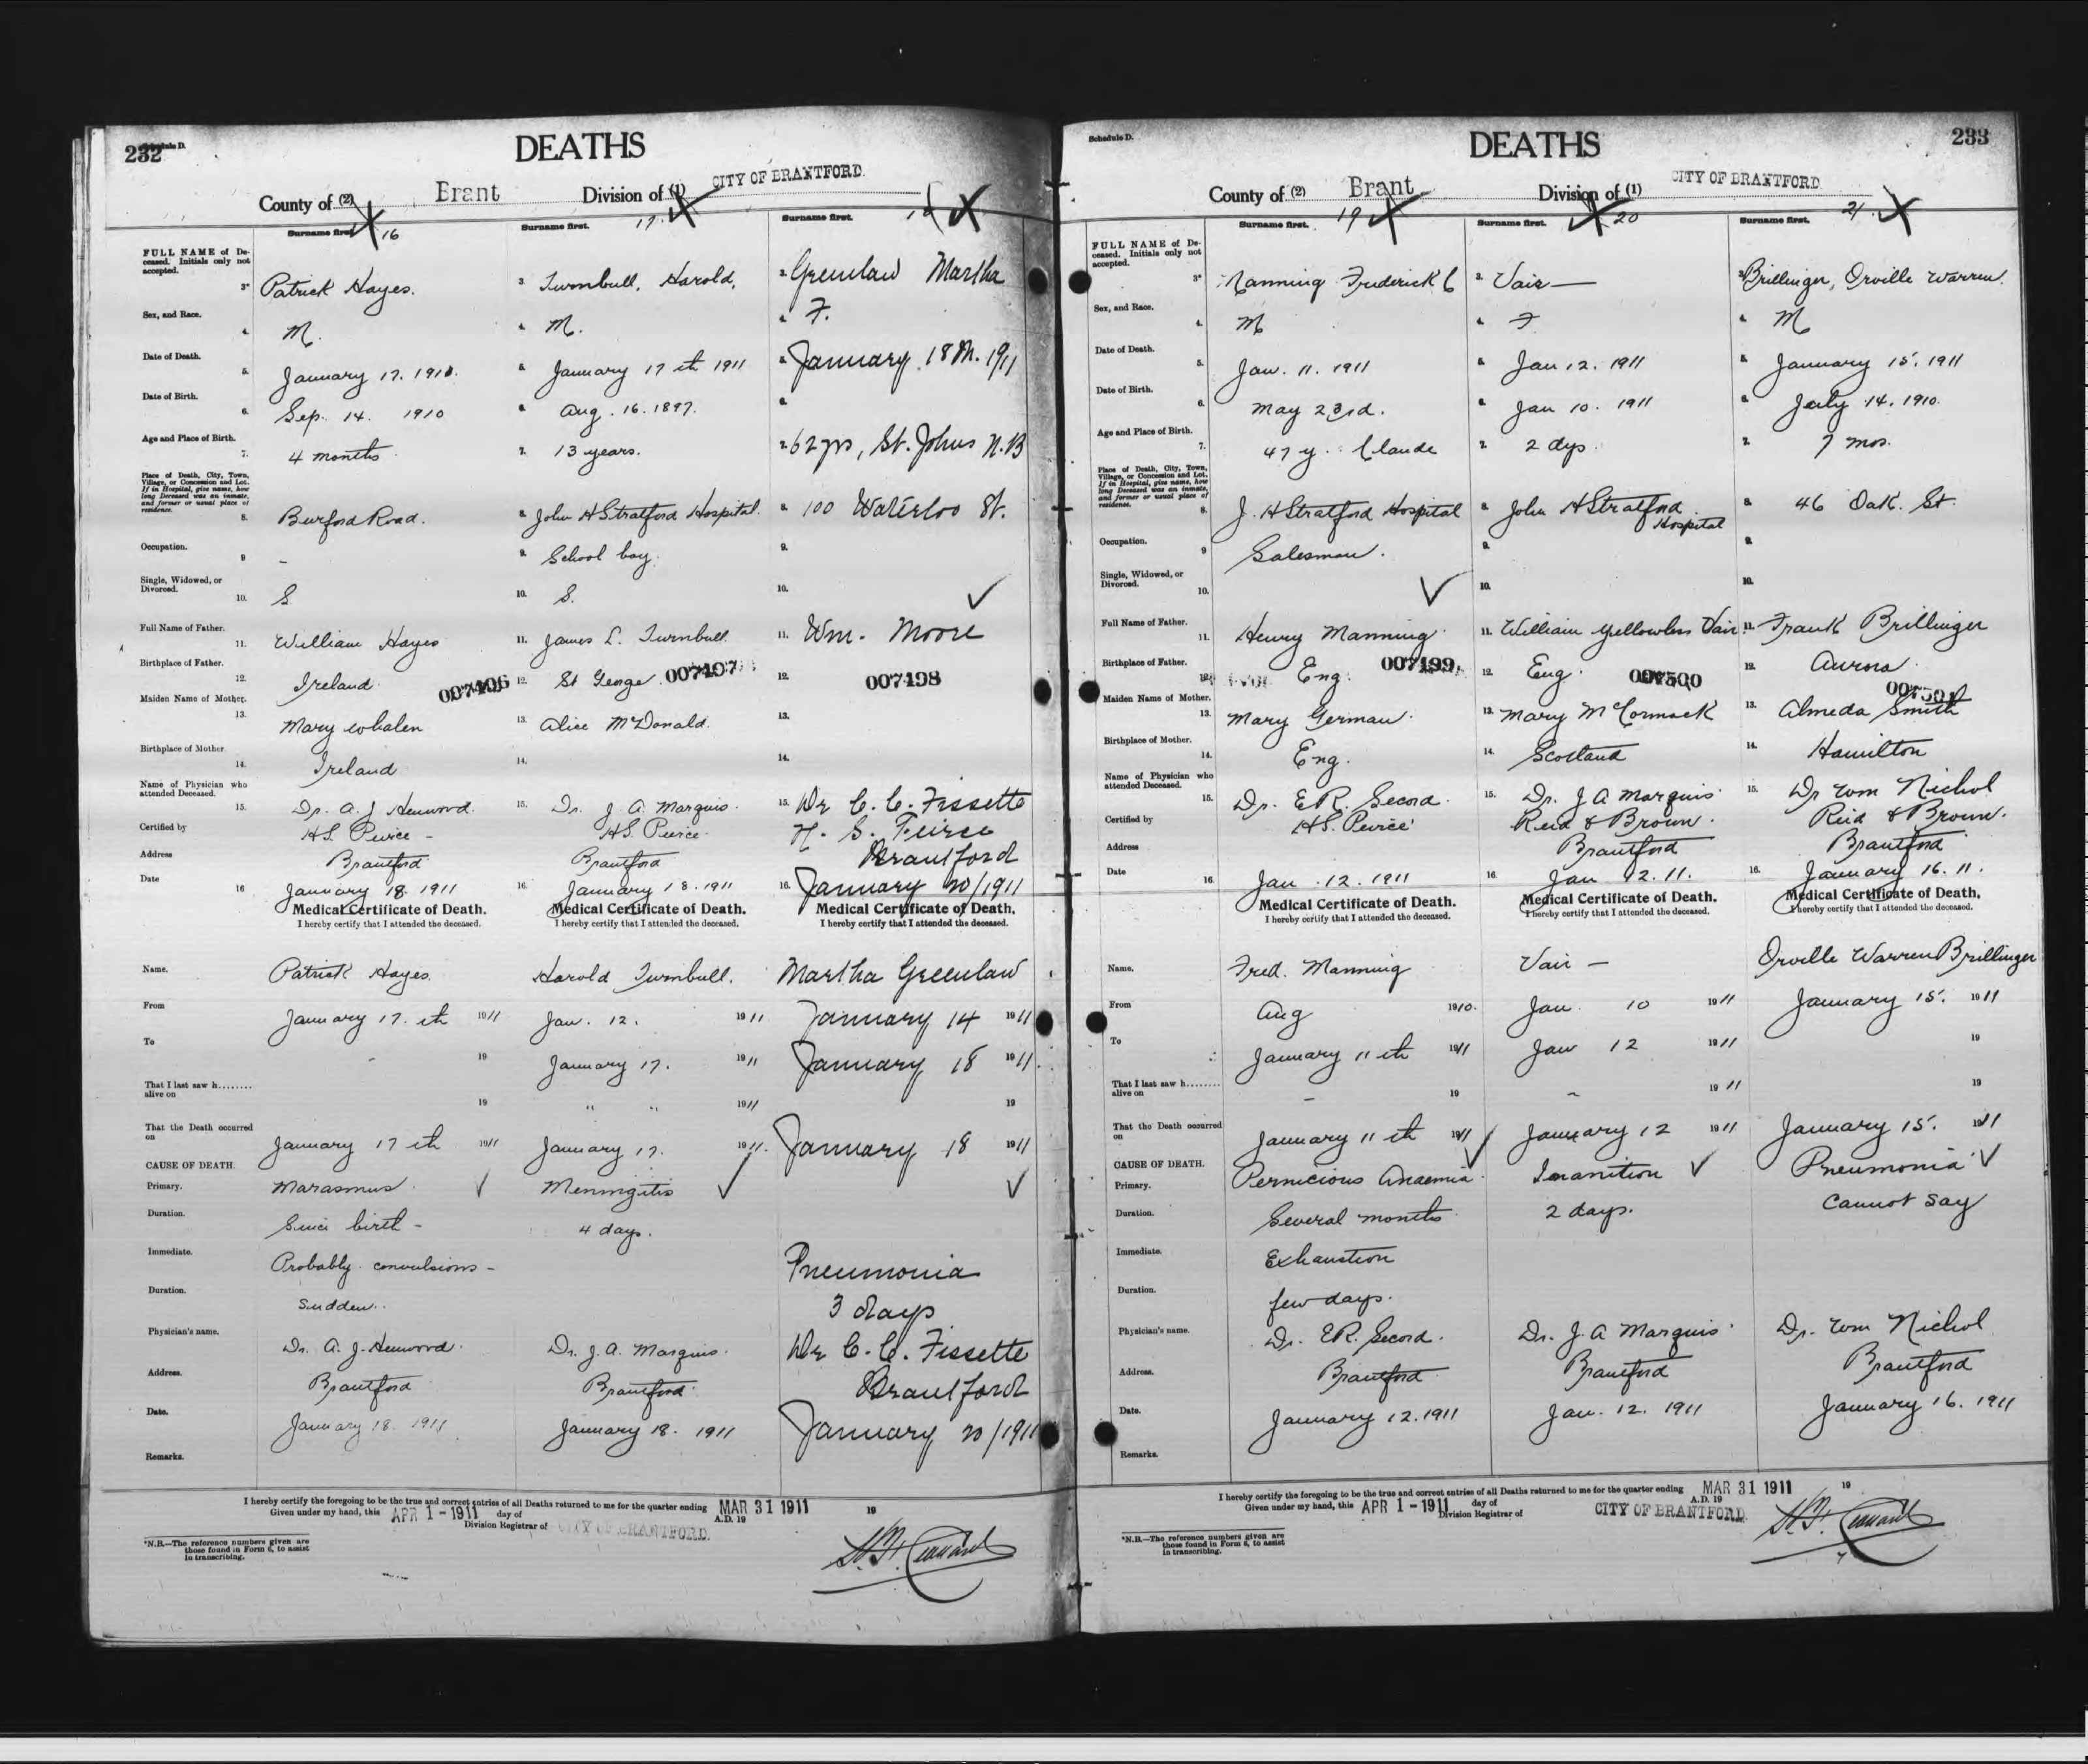 232
Schedule D.
DEATHS
County of (2) Brant Division of (1) CITY OF BRANTFORD.
Surname first. 16
Surname first. 17.
Surname first. 18
FULL NAME of Deceased. Initials only not accepted.
3* Patrick Hayes.
3. Turnbull, Harold,
Greenlaw Martha
Sex, and Race.
4. M.
4. M.
F.
Date of Death.
5. January 17. 1911.
January 17th 1911
January 18th. 1911
Date of Birth.
6. Sep. 14. 1910
Aug. 16. 1897.
Age and Place of Birth.
7. 4 months
7. 13 years.
62 yrs, St. Johns N.B
Place of Death, City, Town, Village, or Concession and Lot. If in Hospital, give name, how long Deceased was an inmate, and former or usual place of residence.
8. Burford Road.
John H Stratford Hospital.
100 Waterloo St.
Occupation.
9 -
9. School boy.
9.
Single, Widowed, or Divorced.
10. S
10. S.
10.
Full Name of Father.
11. William Hayes
11. James L. Turnbull
11. Wm. Moore
Birthplace of Father.
12. Ireland 007496
12. St George 007497
12. 007498
Maiden Name of Mother.
13. Mary Whalen
13. Alice McDonald.
13.
Birthplace of Mother
14. Ireland
14.
14.
Name of Physician who attended Deceased.
15. Dr. A. J Henwood.
15. Dr. J A. Marquis.
15. Dr C. C. Fissette
Certified by
H S. Peirce -
H S. Peirce.
H. S. Peirce
Address
Brantford
Brantford
Brantford
Date
16 January 18. 1911
16. January 18. 1911
16. January 20/1911
Medical Certificate of Death.
I hereby certify that I attended the deceased.
Medical Certificate of Death.
I hereby certify that I attended the deceased.
Medical Certificate of Death.
I hereby certify that I attended the deceased.
Name.
Patrick Hayes.
Harold Turnbull.
Martha Greenlaw
From
January 17.th 1911
Jan. 12. 1911
January 14 1911
To
- 19
January 17. 1911
January 18 1911.
That I last saw h........ alive on
19
" " 1911
19
That the Death occurred on
January 17th 1911
January 17. 1911.
January 18 1911
CAUSE OF DEATH.
Primary.
Marasmus.
Meningitis
Duration.
Since birth -
4 days.
Immediate.
Probably convulsions -
Pneumonia
Duration.
sudden..
3 days
Physician's name.
Dr. A. J. Henwood.
Dr. J. A. Marquis.
Dr C. C. Fissette
Address.
Brantford
Brantford.
Brantford
Date.
January 18. 1911
January 18. 1911
January 20/1911
Remarks.
I hereby certify the foregoing to be the true and correct entries of all Deaths returned to me for the quarter ending MAR 31 1911 19
Given under my hand, this APR 1 - 1911 day of A.D. 19
Division Registrar of CITY OF BRANTFORD.
*N.B.—The reference numbers given are those found in Form 6, to assist in transcribing.
Schedule D.
DEATHS
233
County of (2) Brant Division of (1) CITY OF BRANTFORD
Surname first. 19
Surname first. 20
Surname first. 21.
FULL NAME of Deceased. Initials only not accepted.
3* Manning Frederick C
Vair —
Brillinger, Orville Warren.
Sex, and Race.
4. M
4. F
4. M
Date of Death.
5. Jan. 11. 1911
Jan 12. 1911
January 15. 1911
Date of Birth.
6. May 23rd.
Jan 10. 1911
July 14. 1910.
Age and Place of Birth.
7. 47 y. Claude
7. 2 dys.
7. 7 mos.
Place of Death, City, Town, Village, or Concession and Lot. If in Hospital, give name, how long Deceased was an inmate, and former or usual place of residence.
8. J. H Stratford Hospital
8. John H Stratford Hospital
8. 46 Oak. St.
Occupation.
9 Salesman.
9.
9.
Single, Widowed, or Divorced.
10.
10.
10.
Full Name of Father.
11. Henry Manning
11. William Yellowless Vair
11. Frank Brillinger
Birthplace of Father.
12. Eng. 007499
12. Eng. 007500
12. Aurora
Maiden Name of Mother.
13. Mary German.
13. Mary McCormack
13. Almeda Smith 007501
Birthplace of Mother.
14. Eng.
14. Scotland
14. Hamilton
Name of Physician who attended Deceased.
15. Dr. E R. Secord.
15. Dr. J A Marquis
15. Dr Wm Nichol
Certified by
H S. Peirce
Reid & Brown.
Reid & Brown.
Address
Brantford
Brantford
Date
16. Jan. 12. 1911
16. Jan 12. 11.
16. January 16. 11.
Medical Certificate of Death.
I hereby certify that I attended the deceased.
Medical Certificate of Death.
I hereby certify that I attended the deceased.
Medical Certificate of Death.
I hereby certify that I attended the deceased.
Name.
Fred. Manning
Vair —
Orville Warren Brillinger
From
Aug 1910.
Jan. 10 1911
January 15. 1911
To
January 11th 1911
Jan 12 1911
19
That I last saw h........ alive on
- 19
- 1911
19
That the Death occurred on
January 11th 1911
January 12 1911
January 15. 1911
CAUSE OF DEATH.
Primary.
Pernicious Anaemia
Inanition
Pneumonia
Duration.
Several months
2 days.
Cannot say
Immediate.
Exhaustion
Duration.
few days.
Physician's name.
Dr. E R. Secord.
Dr. J. A Marquis
Dr. Wm Nichol
Address.
Brantford
Brantford
Brantford
Date.
January 12. 1911
Jan. 12. 1911
January 16. 1911
Remarks.
I hereby certify the foregoing to be the true and correct entries of all Deaths returned to me for the quarter ending MAR 31 1911 19
Given under my hand, this APR 1 - 1911 day of A.D. 19
Division Registrar of CITY OF BRANTFORD.
*N.B.—The reference numbers given are those found in Form 6, to assist in transcribing.